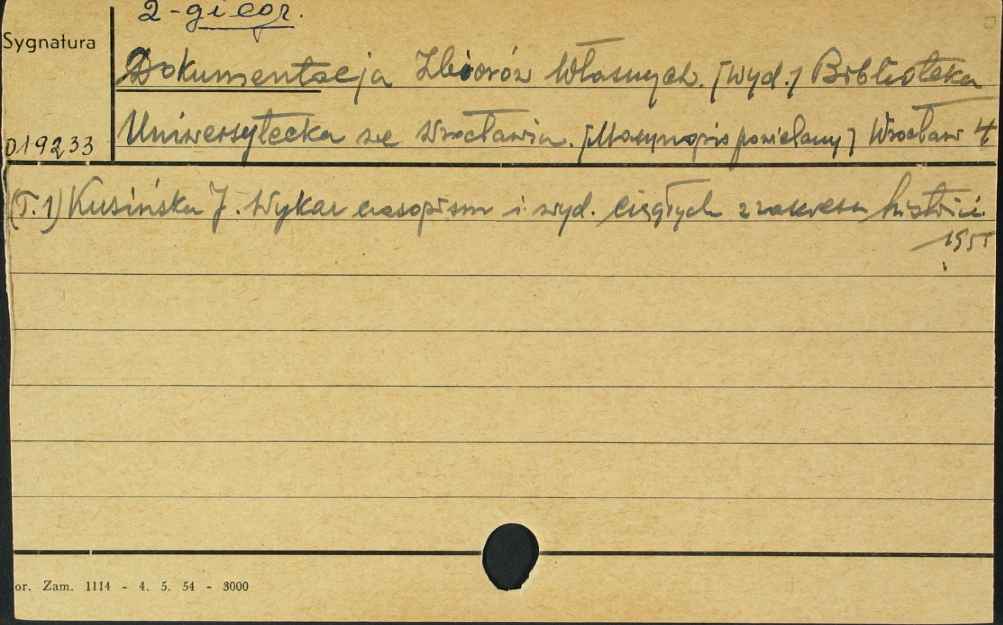 2-gi egz.
Sygnatura
Dokumentacja Zbiorów Własnych. [Wyd.] Biblioteka
019233
Uniwersytecka we Wrocławiu. [Maszynopis powielany] Wrocław 4
(T.1) Kusińska J. Wykaz czasopism i wyd. ciągłych z zakresu historii.
1955
or. Zam. 1114 - 4. 5. 54 - 3000